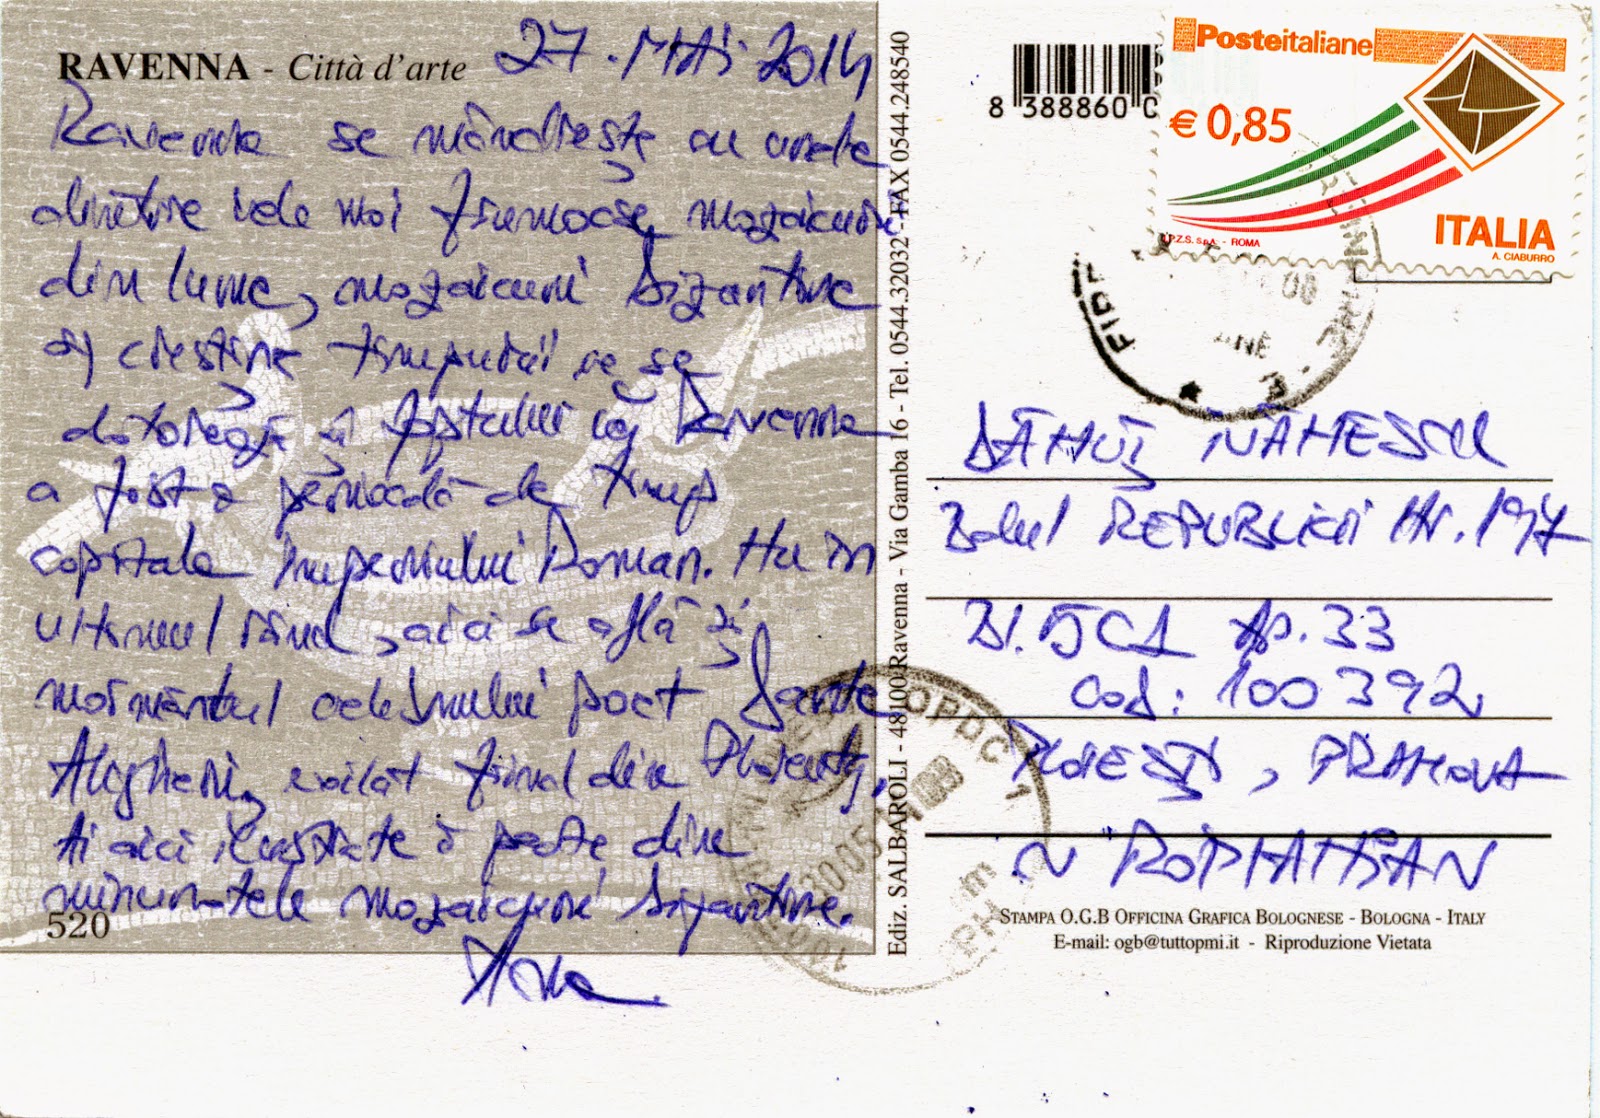 RAVENNA - Città d'arte
27. MAI 2014
Ravenna se mândrește cu unele
dintre cele mai frumoase mozaicuri
din lume, mozaicuri bizantine
și creștine timpurii ce se
datorează și faptului că Ravenna
a fost o perioadă de timp
capitala Imperiului Roman. Nu în
ultimul rând, aici se află și
mormântul celebrului poet Dante
Alighieri, exilat fiind din Florența,
Ai aici ilustrate o parte din
minunatele mozaicuri bizantine.
Ana
520
Ediz. SALBAROLI - 48100 Ravenna - Via Gamba 16 - Tel. 0544.32032 - FAX 0544.248540
8 388860 0
Posteitaliane
€ 0,85
ITALIA
A. CIABURRO
I.P.Z.S. S.p.A. - ROMA
DĂNUȚ
Bdul REPUBLICII Nr. 197
Bl. 5C1 Ap. 33
cod: 100392
PLOIEȘTI, PRAHOVA
STAMPA O.G.B OFFICINA GRAFICA BOLOGNESE - BOLOGNA - ITALY
E-mail: ogb@tuttopmi.it - Riproduzione Vietata